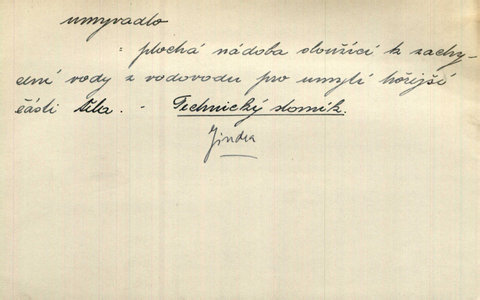 umyvadlo
: plochá nádoba sloužící k zachy-
cení vody z vodovodu pro umytí hořejší
části těla. - Technický slovník.
Jindra